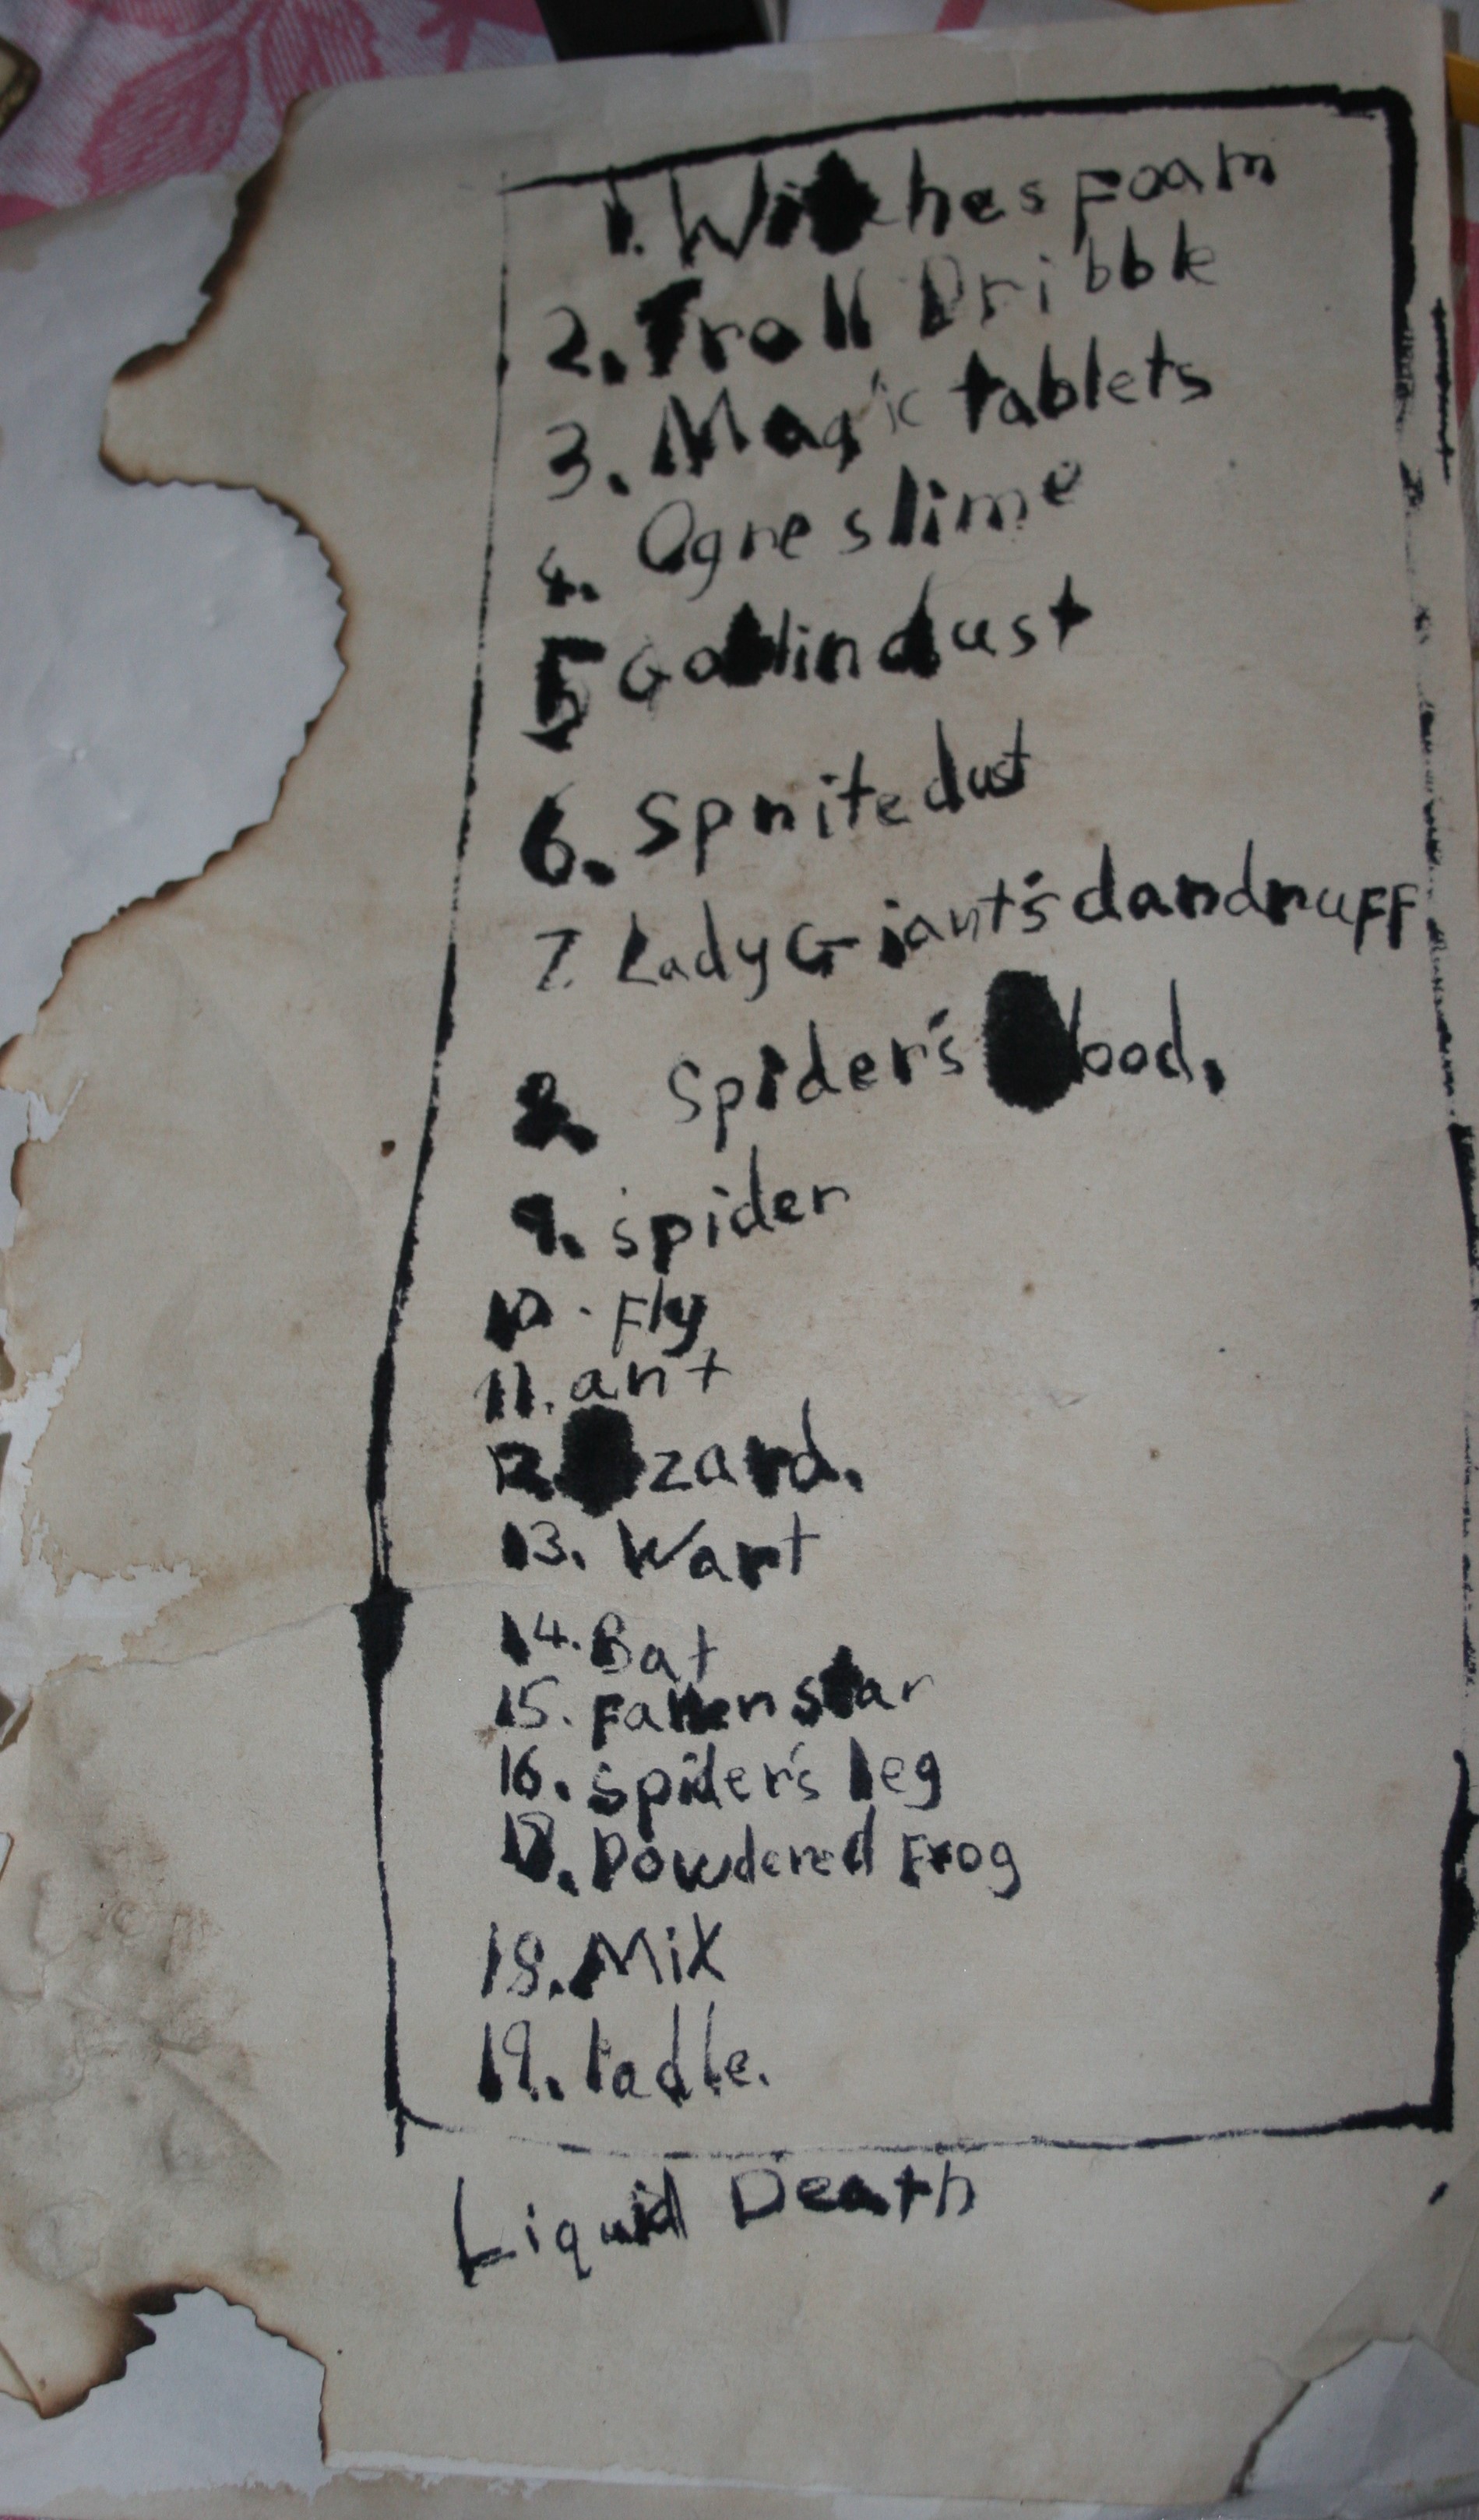 1. Witches Foam
2. Troll Dribble
3. Magic tablets
4. Ogre slime
5 Goblin dust
6. Sprite dust
7 Lady Giant's dandruff
8 Spider's blood.
9. spider
10. Fly
11. ant
12. zard.
13. Wart
14. Bat
15. Fallen star
16. spider's leg
Powdered Frog
18. Mix
19. ladle.
Liquid Death